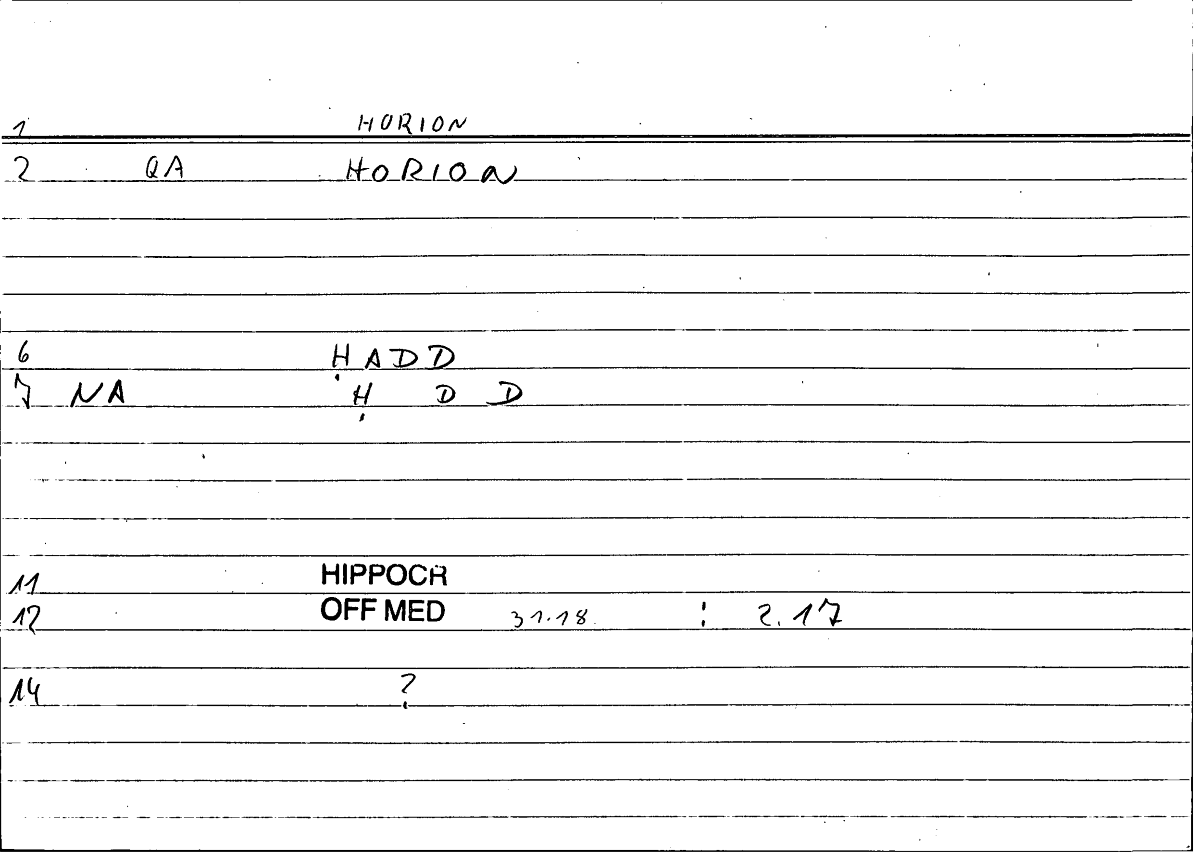 1 HORION
2 QA HORION
6 HADD
7 NA H D D
11 HIPPOCR
12 OFF MED 31.18. : 2.17
14 ?